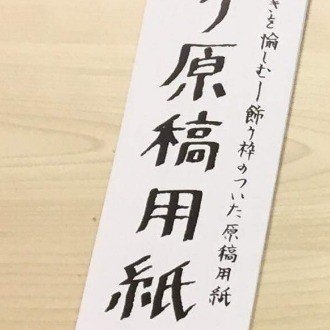 り原稿用紙
きを愉しむ―飾り枠のついた原稿用紙